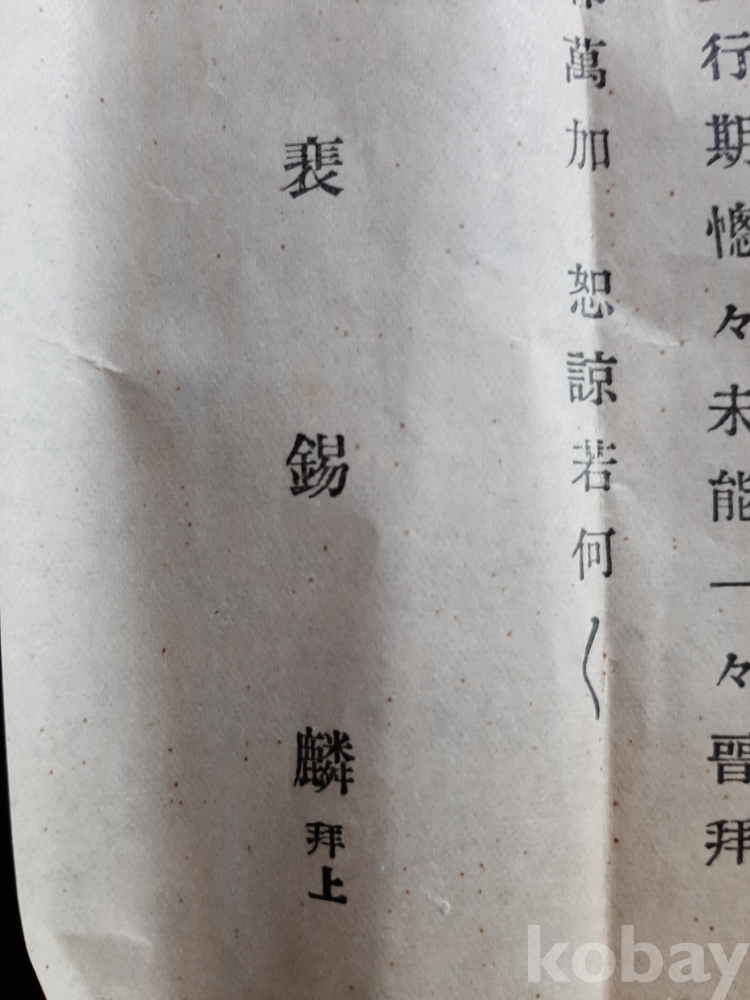 行期悤々未能一々晉拜
萬加 恕諒若何〱
裴錫麟拜上
kobay